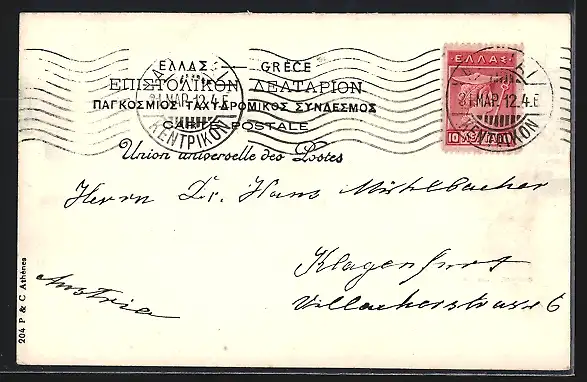 ΕΛΛΑΣ — GRÈCE
ΕΠΙΣΤΟΛΙΚΟΝ ΔΕΛΤΑΡΙΟΝ
ΠΑΓΚΟΣΜΙΟΣ ΤΑΧΥΔΡΟΜΙΚΟΣ ΣΥΝΔΕΣΜΟΣ
CARTE POSTALE
Union universelle des Postes
31 ΜΑΡ. 12. 4. Ε
ΚΕΝΤΡΙΚΟΝ
ΕΛΛΑΣ
31 ΜΑΡ. 12. 4. Ε
ΚΕΝΤΡΙΚΟΝ
10
Herrn Dr. Hans Mühlbacher
Klagenfurt
Villacherstrasse 6
Austria
204 P & C Athènes